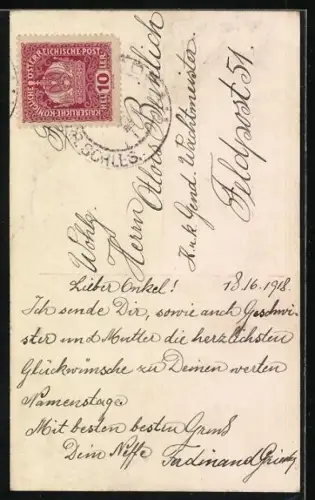 KAISERLICHE KÖNIGLICHE ÖSTERREICHISCHE POST
10 HELLER
SCHLES.
Wohlg.
Herrn Alois
K.u.k. Gend. Wachtmeister
Feldpost 51.
Lieber Onkel! 18.16.1918.
Ich sende Dir, sowie auch Geschwi-
ster und Mutter die herzlichsten
Glückwünsche zu Deinen werten
Namenstage
Mit besten besten Gruß
Dein Neffe Ferdinand